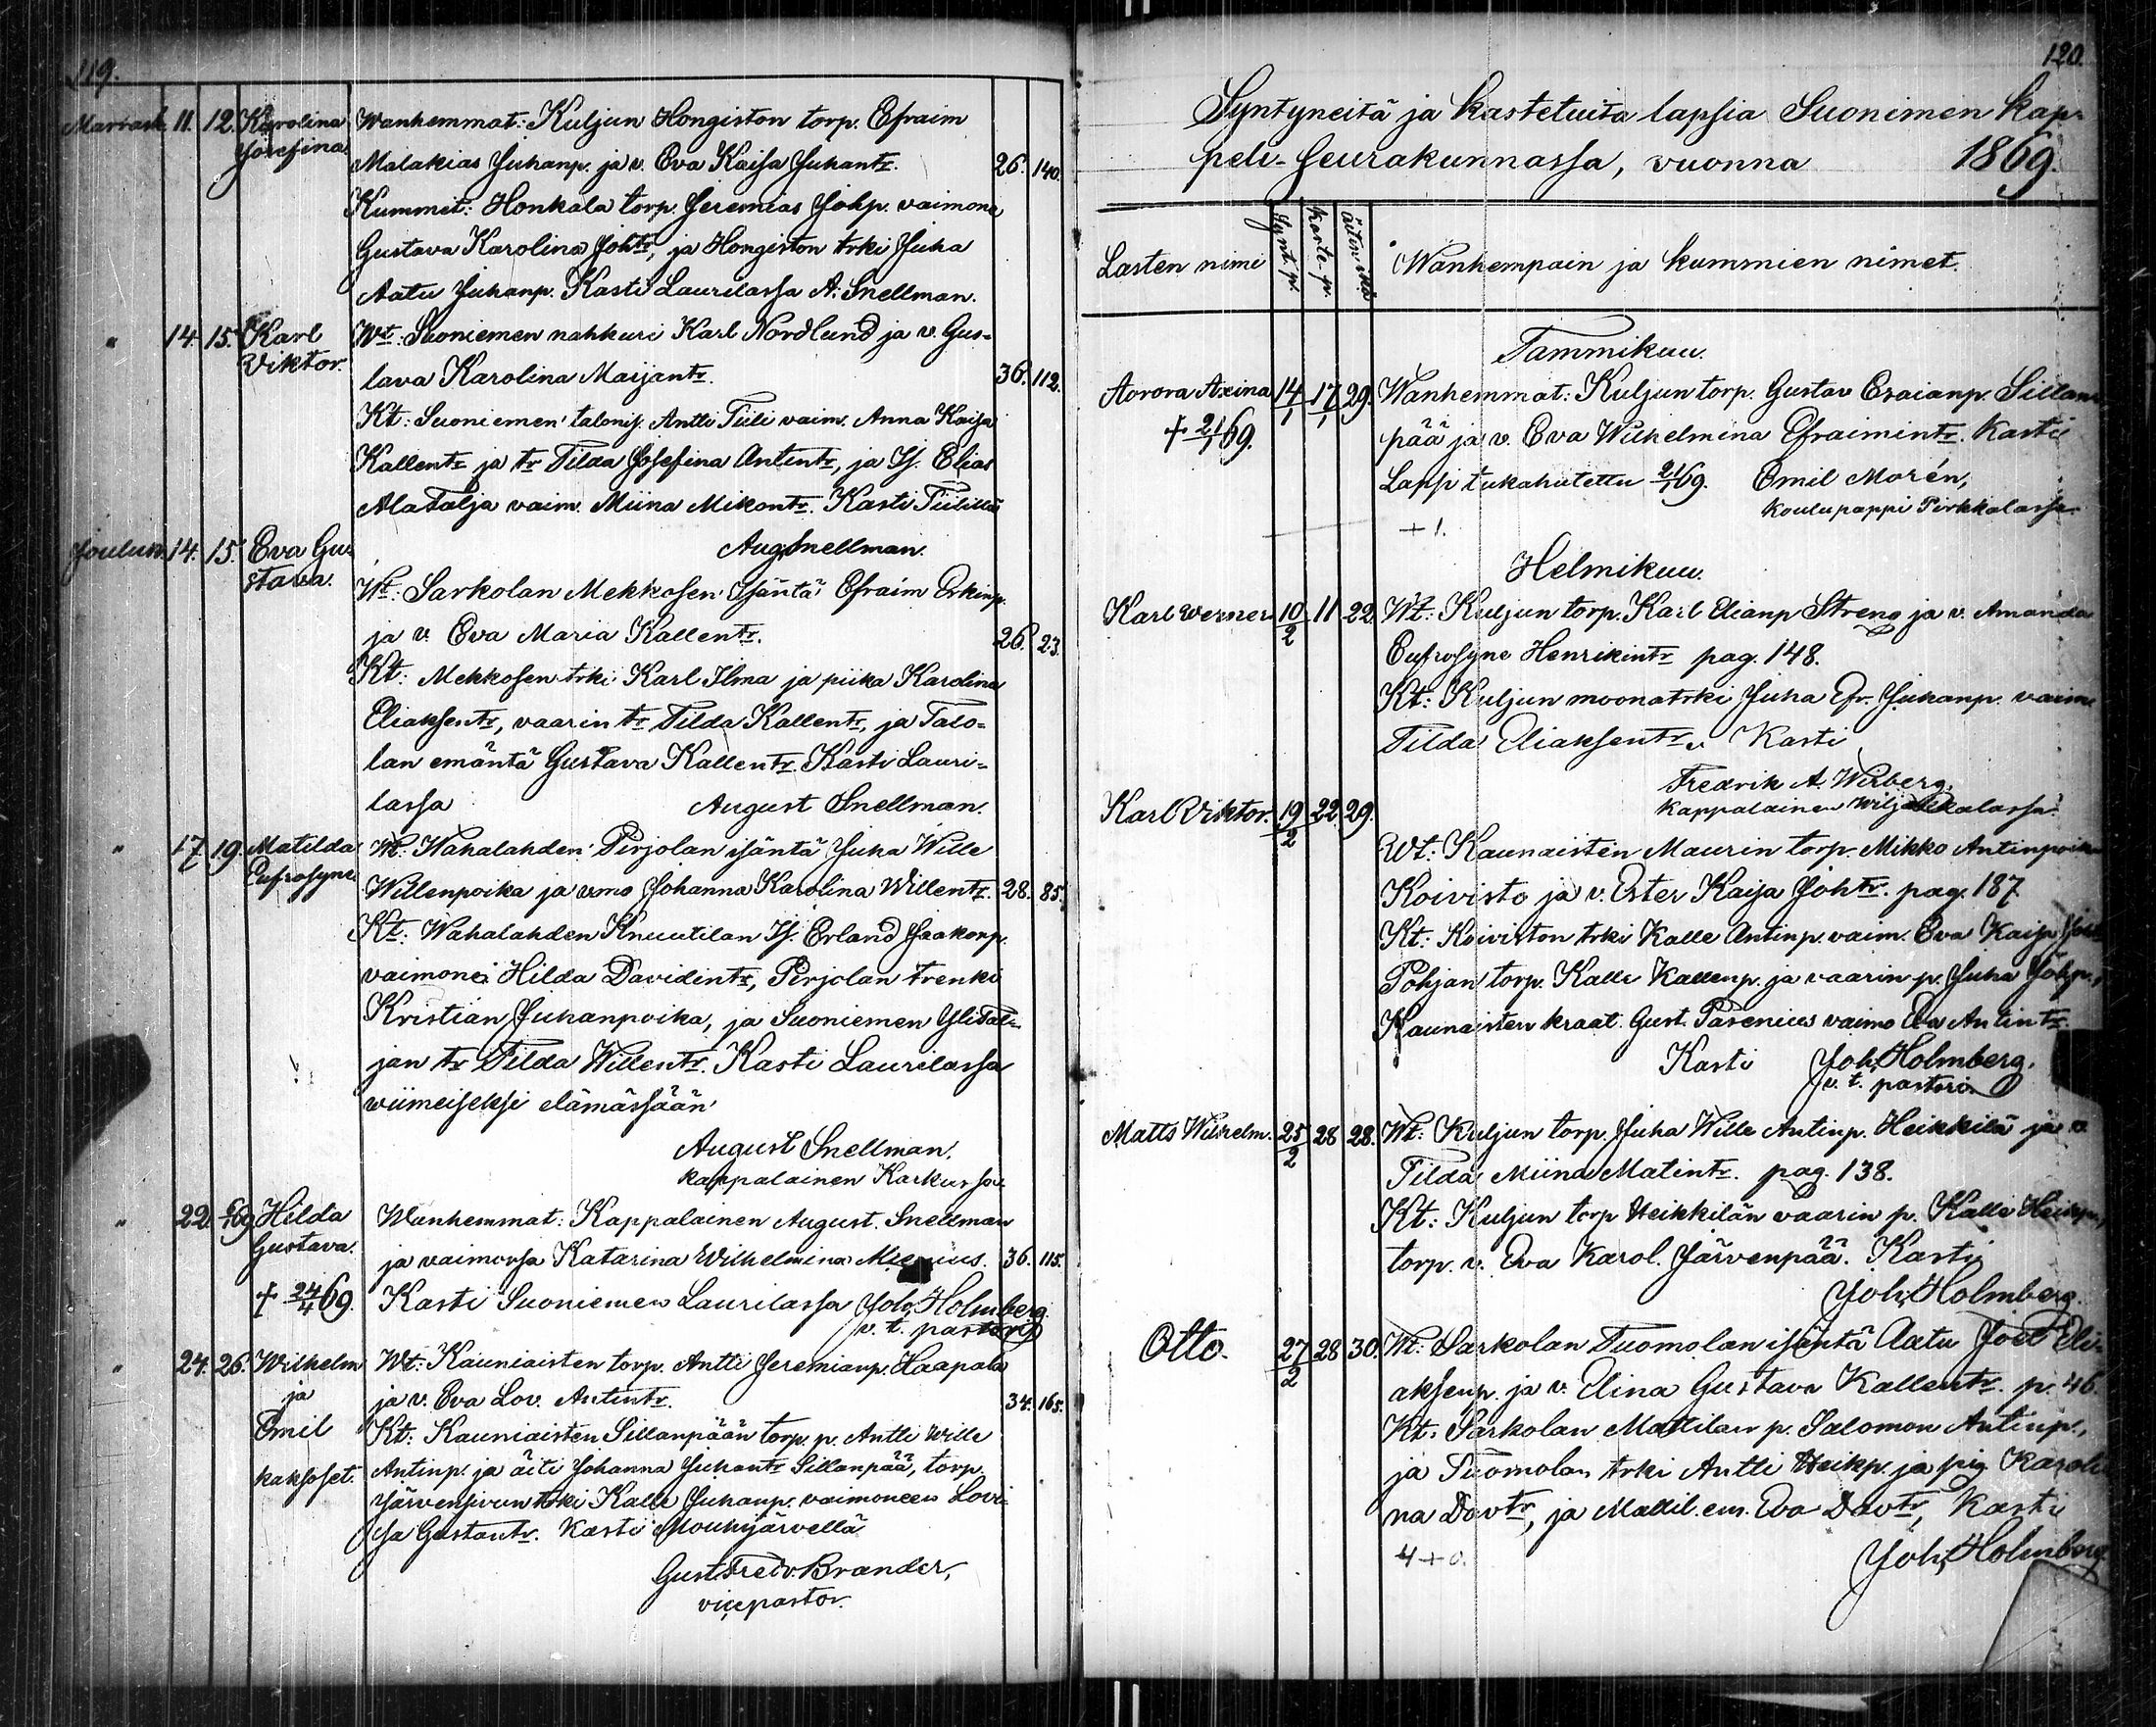 119.
Marrask. 11. 12. Karolina Wanhemmat: Kuljun Hongiston torp. Efraim
Josefina. Malakias Juhanp. ja v. Eva Kaisa Juhantr. 26. 140.
Kummit: Honkala torp. Jeremias Johp. vaimone
Gustava Karolina Johtr, ja Hongiston trki Juha
Aatu Juhanp. Kasti Laurilassa A. Snellman.
" 14. 15. Karl Wt: Suoniemen nahkuri Karl Nordlund ja v. Gus-
Viktor. tava Karolina Maijantr. 36. 112.
Kt: Suoniemen talonij. Antti Tiili vaim. Anna Kaisa
Kallentr ja tr Tilda Josefina Antintr, ja Ij. Elias
AlaTalja vaim. Miina Mikontr. Kasti Tiilillä
Aug. Snellman.
Jouluk. 14. 15. Eva Gus
stava. Wt: Sarkolan Mekkosen Isäntä Efraim Erkinp.
ja v. Eva Maria Kallentr. 26. 23.
Kt: Mekkosen trki Karl Ilma ja piika Karolina
Eliaksentr, vaarin tr Tilda Kallentr, ja Talo-
lan emäntä Gustava Kallentr. Kasti Lauri-
lassa August Snellman.
" 17. 19. Matilda Wt: Wahalahden Pirjolan isäntä Juha Wille
Eufrosyne. Willenpoika ja vmo Johanna Karolina Willentr. 28. 85.
Kt: Wahalahden Knuutilan Ij. Erland Jaakonp.
vaimonei Hilda Davidintr, Pirjolan trenki
Kristian Juhanpoika, ja Suoniemen YliTal-
jan tr Tilda Willentr. Kasti Laurilassa
wiimeiseksi elämässään
August Snellman.
kappalainen Karkussa
" 22. 6/1 69 Hilda Wanhemmat: Kappalainen August. Snellman
Gustava. ja vaimonsa Katarina Wilhelmina 36. 115.
† 24/4 69. Kasti Suoniemen Laurilassa Joh. Holmberg.
v. t. pastori
" 24. 26. Wilhelm Wt: Kauniaisten torp. Antti Jeremianp. Haapala
ja ja v. Eva Lov. Antintr. 34. 165.
Emil Kt: Kauniaisten Sillanpään torp. p. Antti Wille
kaksoset. Antinp. ja äiti Johanna Juhantr Sillanpää, torp.
Järvensivun trki Kalle Juhanp. vaimoneen Lovi-
sa Gustantr. Kasti Mouhijärvellä
Gust. Fredr. Brander,
vicepastor.
120.
Syntyneitä ja kastetuita lapsia Suonimen kap-
peli-seurakunnassa, vuonna 1869.
Lasten nimi Synt. p. kaste-p. äitin ikä Wanhempain ja kummien nimet.
Tammikuu.
Aorora Axina 14/1 17/1 29. Wanhemmat: Kuljun torp. Gustav Esaianp. Sillan
† 21/1 69. pää ja v. Eva Wilhelmina Efraimintr. Kasti
Lapsi tukahutettu 21/1 69. Emil Morén,
koulupappi Pirkkalassa.
+ 1.
Helmikuu.
Karl Verner 10/2 11 22. Wt: Kuljun torp. Karl Elianp Streng ja v. Amanda
Eufrosyne Henrikintr pag. 148.
Kt: Kuljun moonatrki Juha Efr. Juhanp. vaim.
Tilda Eliaksentr. Kasti
Fredrik A. Wirberg.
kappalainen Wiljakkalassa.
Karl Viktor. 19/2 22. 29.
Wt: Kaunaisten Maurin torp. Mikko Antinpoika
Koivisto ja v. Ester Kaija Johtr. pag. 187.
Kt: Koiviston trki Kalle Antinp. vaim. Eva Kaija
Pohjan torp. Kalle Kallenp. ja vaarin p. Juha Johp.,
Kaunaisten kraat. Gust. Pasenius vaimo Eva Antintr.
Kasti Joh. Holmberg.
v. t. pastori.
Matts Wilhelm. 25/2 28 28. Wt: Kuljun torp. Juha Wille Antinp. Heikkilä ja v
Tilda Miina Matintr. pag. 138.
Kt: Kuljun torp Heikkilän vaarin p. Kalle Heikinp.,
torp. v. Eva Karol. Järvenpää. Kasti
Joh. Holmberg.
Otto. 27/2 28 30. Wt: Sarkolan Tuomolan isäntä Aatu Joel Eli-
aksenp. ja v. Elina Gustava Kallentr. p. 46.
Kt: Sarkolan Mattilan p. Salomon Antinp.,
ja Tuomolan trki Antti Heikp. ja pig Karoli
na Davtr, ja Mattil. em. Eva Davtr, Kasti
4 + 0. Joh. Holmberg